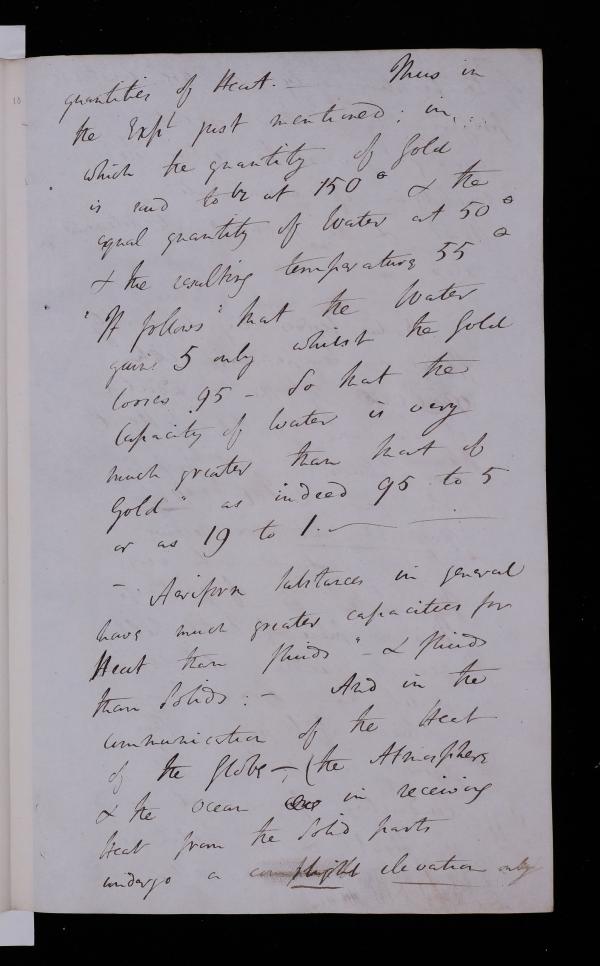 quantities of Heat. — Thus in
the Expt just mentioned; in
which the quantity of Gold
is said to be at 150° & the
equal quantity of Water at 50°
& the resulting temperature 55°
"It follows" that the Water
gains 5 only whilst the Gold
looses 95 — So that the
Capacity of Water is very
much greater than that of
Gold" as indeed 95 to 5
or as 19 to 1. —
— Aeriform Substances in general
have much greater capacities for
Heat than fluids" — & fluids
than Solids: — And in the
communication of the Heat
of the Globe —, (the Atmosphere
& the Ocean in receiving
Heat from the Solid parts
undergo a elevation only